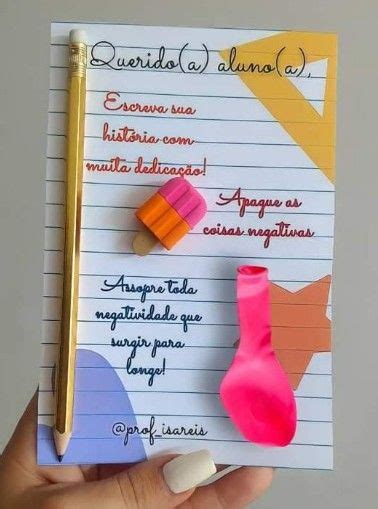 Querido(a) aluno(a),
Escreva sua
história com
muita dedicação!
Apague as
coisas negativas
Assopre toda
negatividade que
surgir para
longe!
@prof_isareis